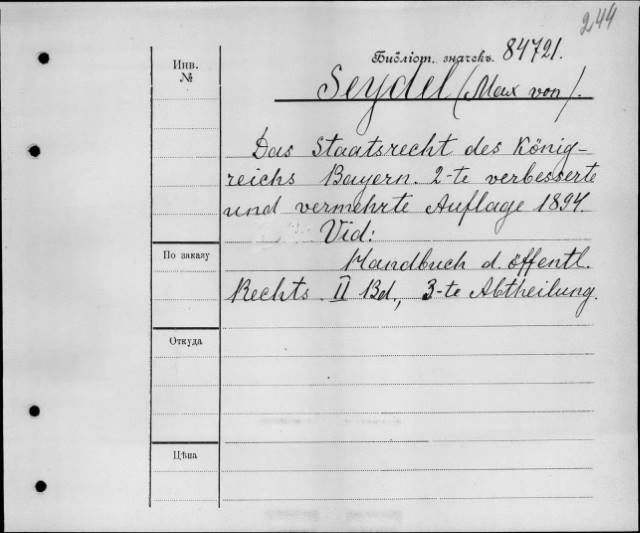 244
Библіот. значекъ. 84721.
Инв.
№
Seydel (Max von).
Das Staatsrecht des König-
reichs Bayern. 2-te verbesserte
und vermehrte Auflage 1894.
Vid:
По заказу
Handbuch d. öffentl.
Rechts. II Bd., 3-te Abtheilung.
Откуда
Цѣна